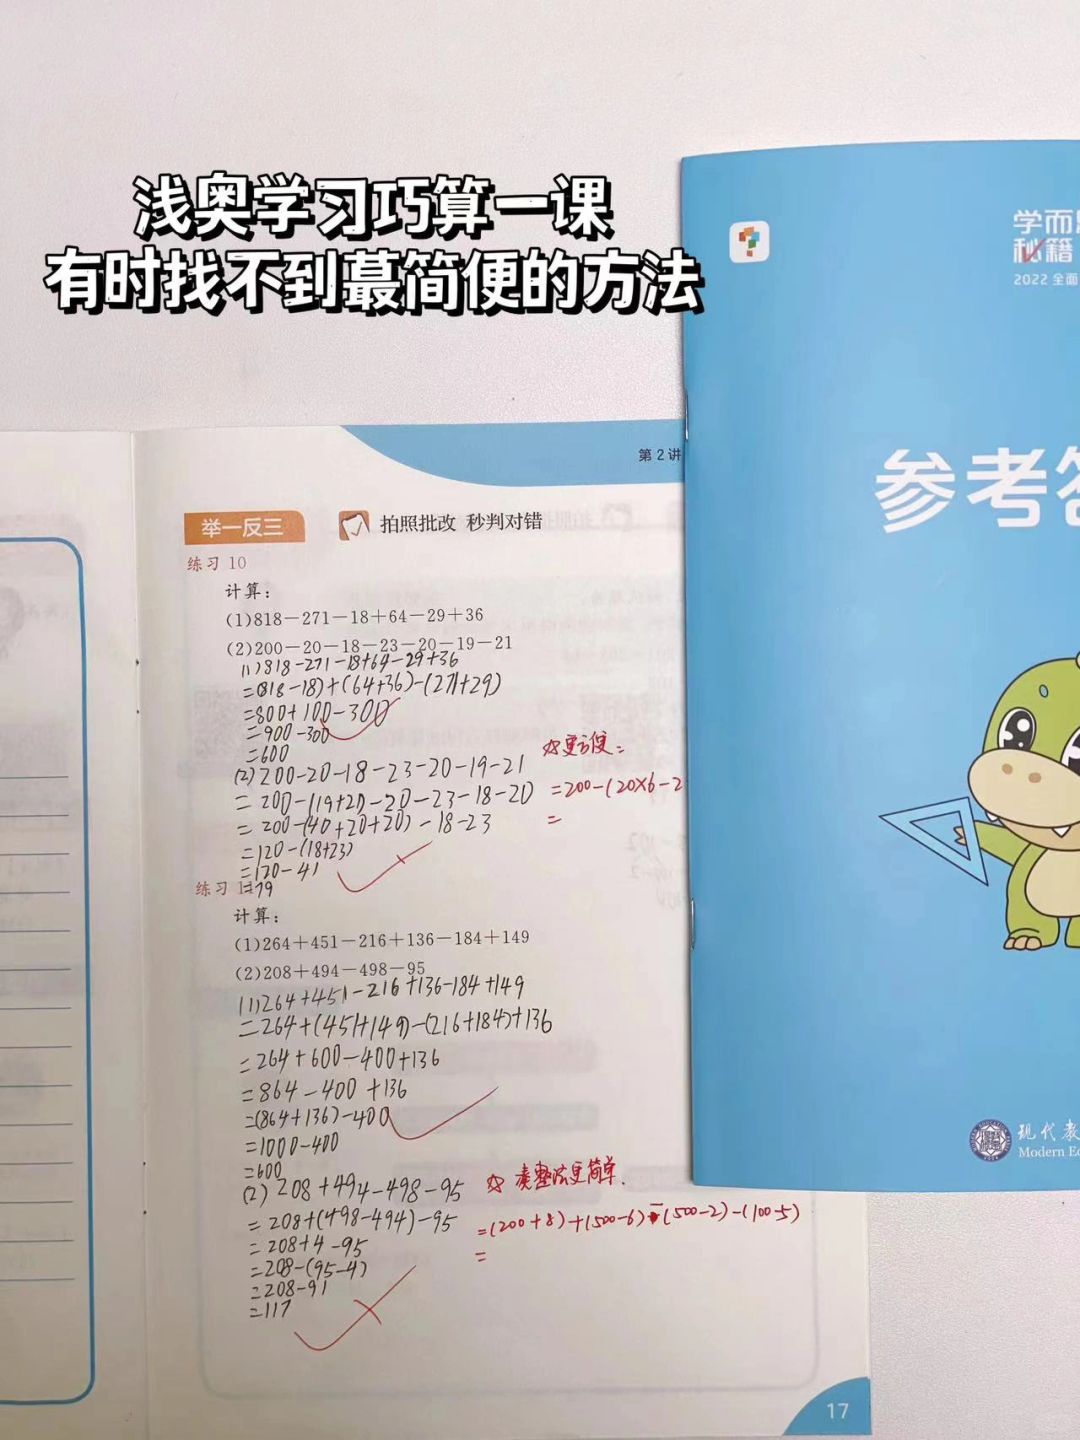 浅奥学习巧算一课
有时找不到蕞简便的方法
2022 全面
第 2 讲
举一反三
拍照批改 秒判对错
练习 10
计算：
(1)818－271－18＋64－29＋36
(2)200－20－18－23－20－19－21
(1)818-271-18+64-29+36
=(818-18)+(64+36)-(271+29)
=800+100-300
=900-300
=600
(2)200-20-18-23-20-19-21
=200-(19+21)-20-23-18-20
=200-(40+20+20)-18-23
=120-(18+23)
=120-41
=79
☆更方便:
=200-(20×6-2
=
练习 1
计算：
(1)264＋451－216＋136－184＋149
(2)208＋494－498－95
(1)264+451-216+136-184+149
=264+(451+149)-(216+184)+136
=264+600-400+136
=864-400+136
=(864+136)-400
=1000-400
=600
(2)208+494-498-95
=208+(498-494)-95
=208+4-95
=208-(95-4)
=208-91
=117
☆凑整法更简单.
=(200+8)+(500-6)-(500-2)-(100-5)
=
17
学而
秘籍
参考
现代教
Modern Ed